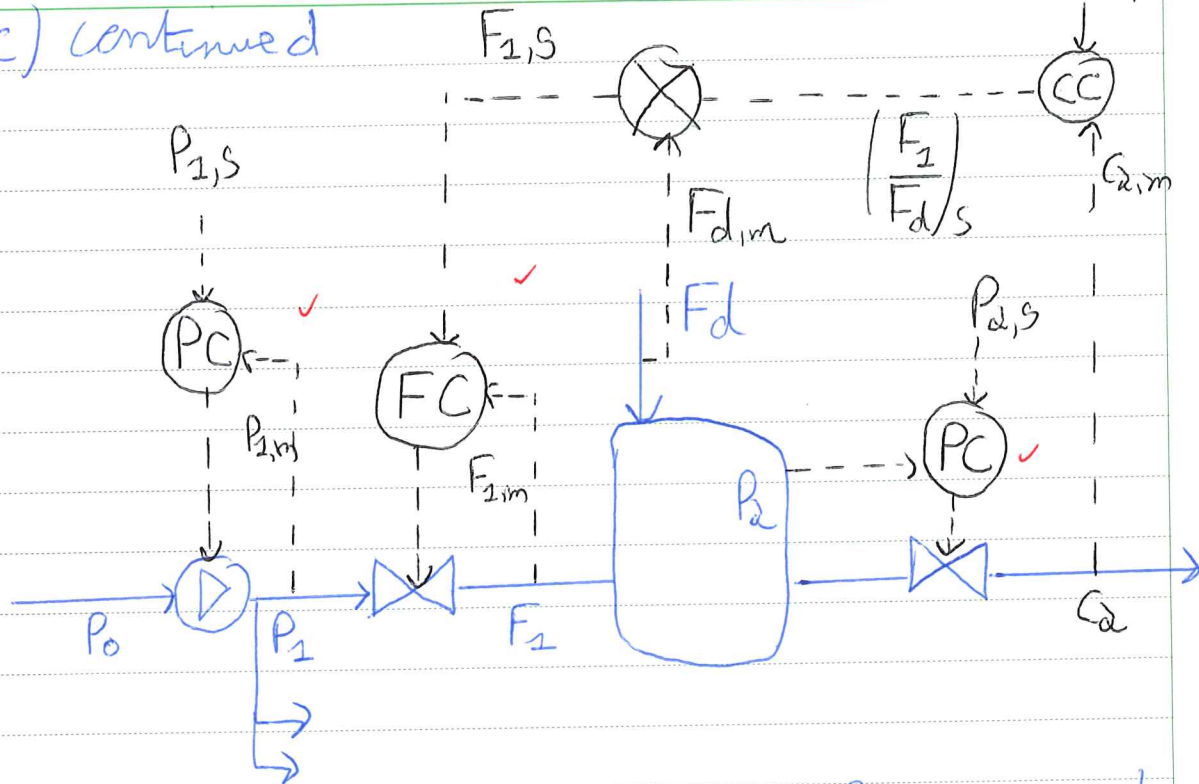 c) continued
F1,s
CC
P1,s
(F1/Fd)s
C2,m
Fd,m
Fd
P2,s
PC
FC
PC
P1,m
F1,m
P2
P0
P1
F1
C2